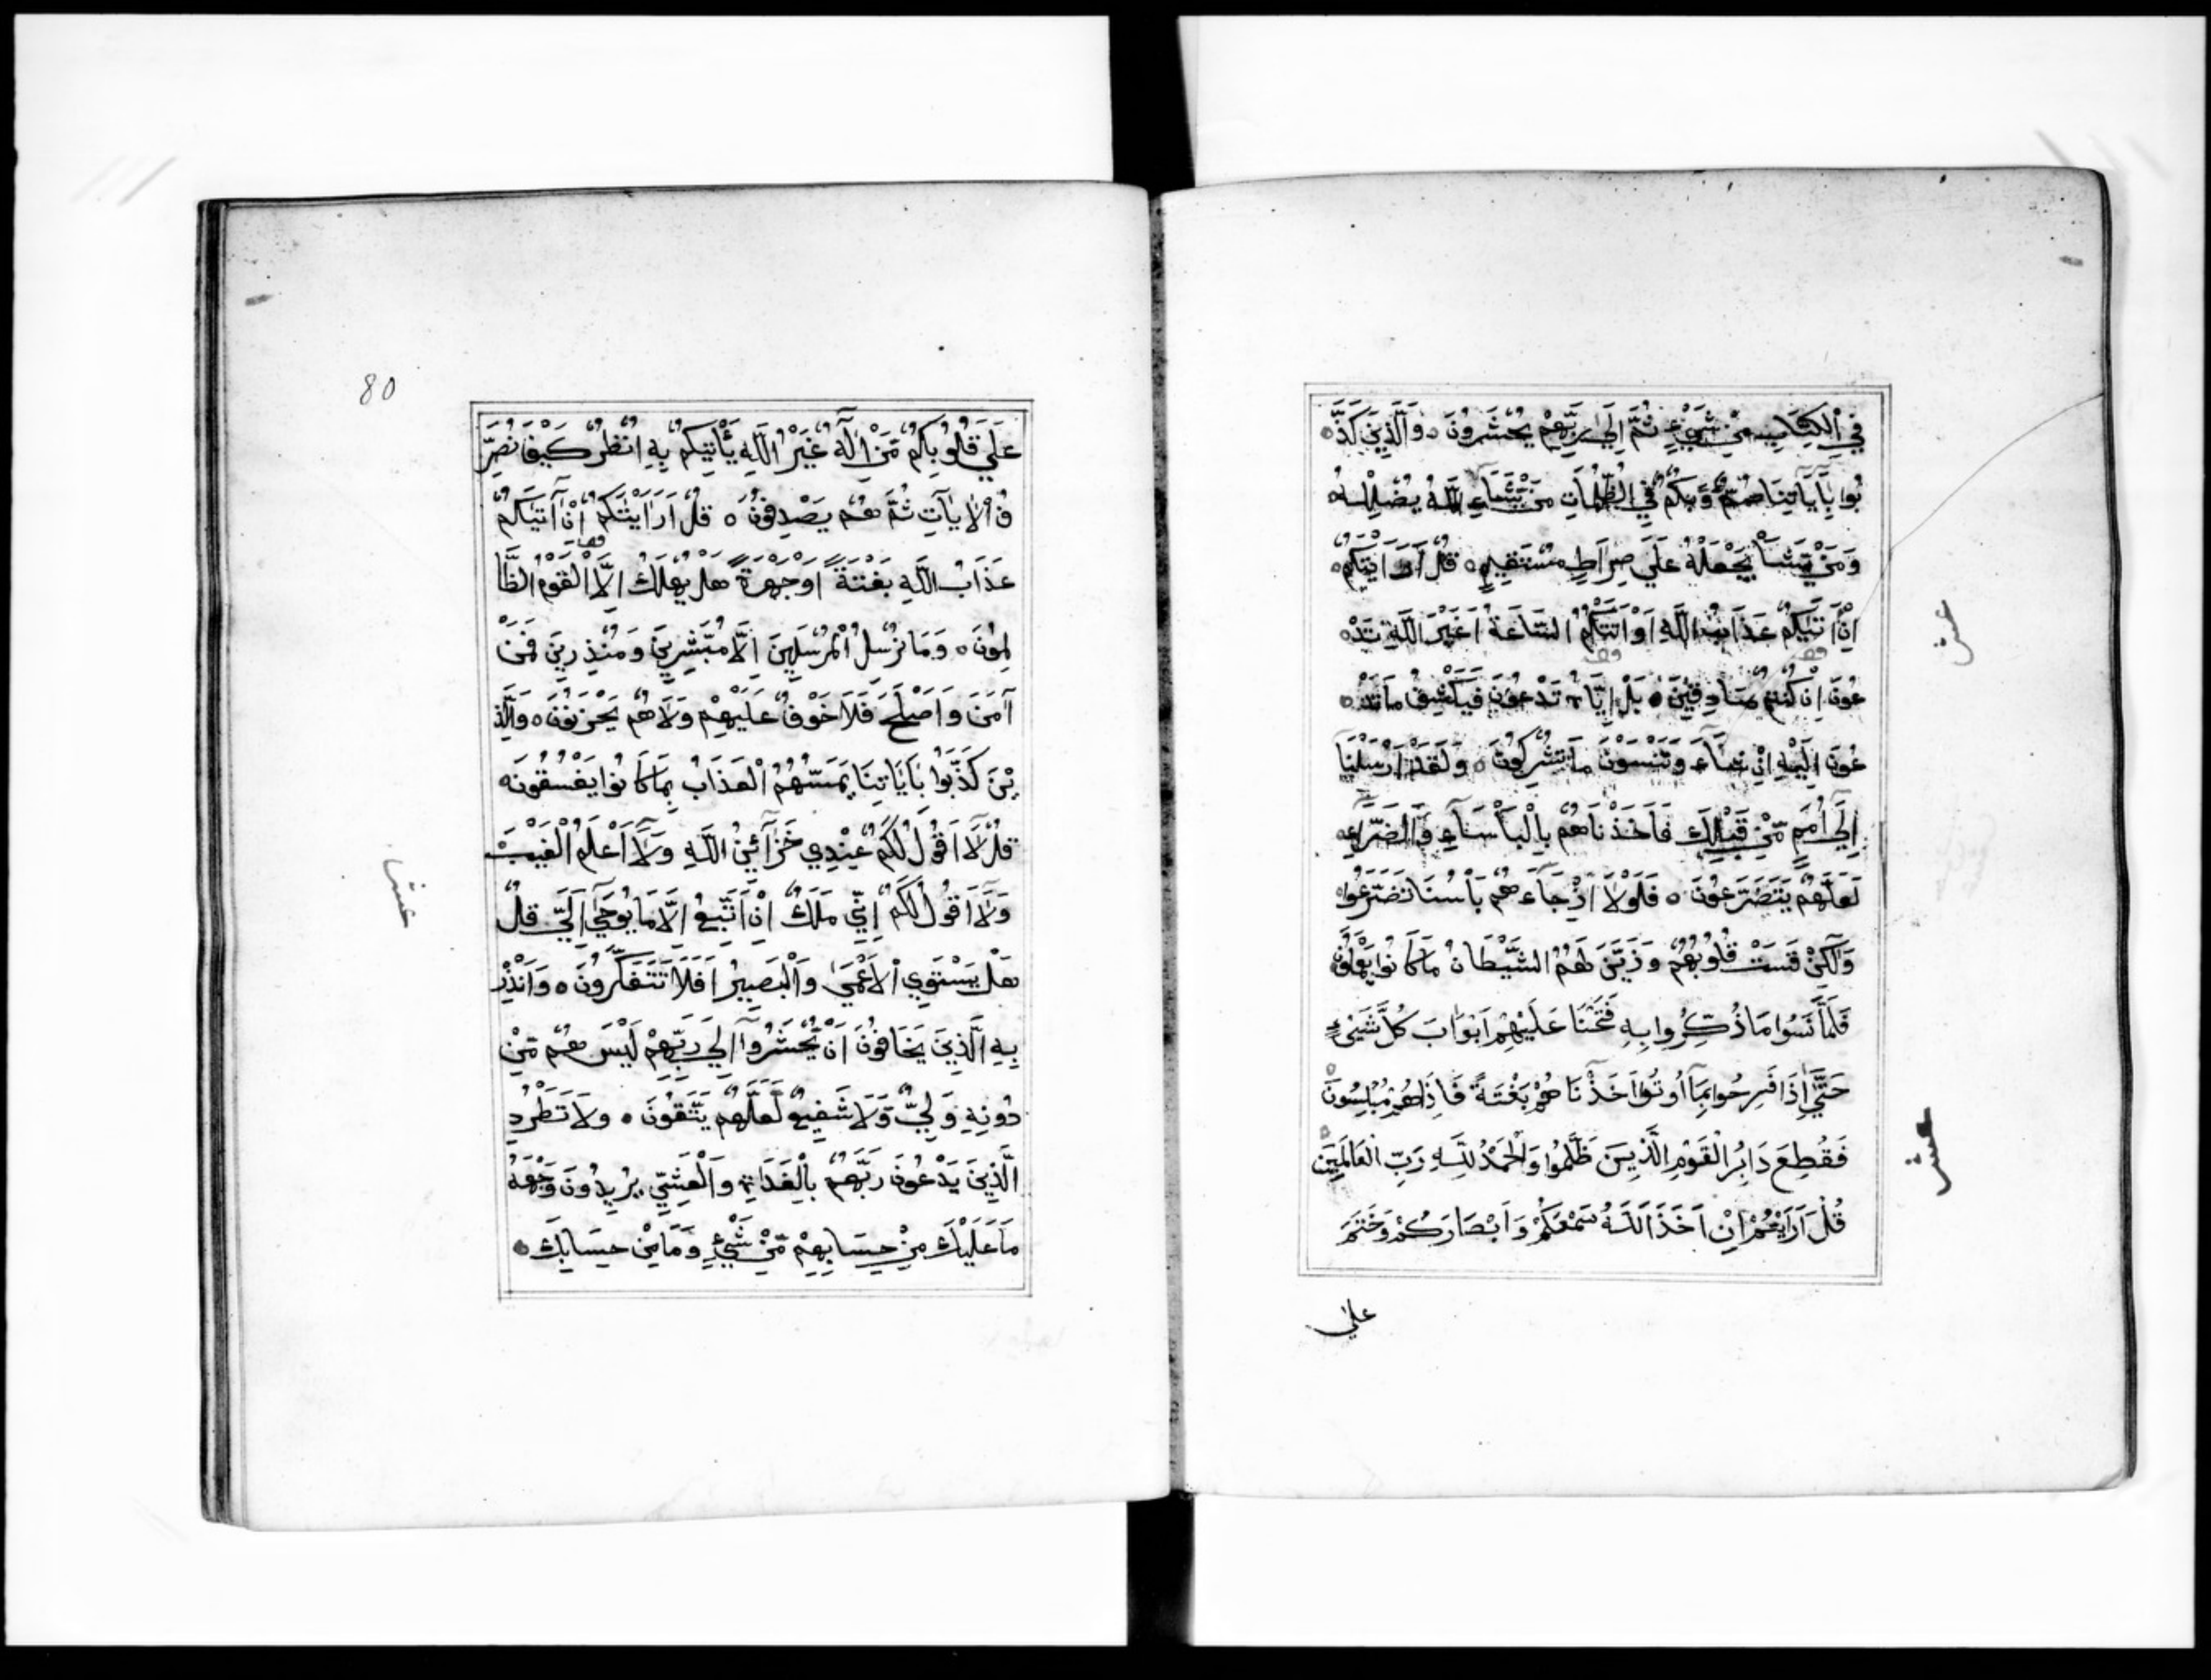 فِي الْكِتَابِ مِنْ شَيْءٍ ثُمَّ اِلَى رَبِّهِمْ يُحْشَرُونَ ٥ وَالَّذِينَ كَذَّ
بُوا بِآيَاتِنَا صُمٌّ وَّبُكْمٌ فِي الظُّلُمَاتِ مَنْ يَّشَاءِ اللَّهُ يُضْلِلْهُ
وَمَنْ يَّشَأْ يَجْعَلْهُ عَلَى صِرَاطٍ مُسْتَقِيمٍ ٥ قُلْ اَرَاَيْتَكُمْ
اِنْ اَتَيكُمْ عَذَابُ اللَّهِ اَوْ اَتَتْكُمُ السَّاعَةُ اَغَيْرَ اللَّهِ تَدْ
عُونَ اِنْ كُنْتُمْ صَادِقِينَ ٥ بَلْ اِيَّاهُ تَدْعُونَ فَيَكْشِفُ مَا تَدْ
عُونَ اِلَيْهِ اِنْ شَآءَ وَتَنْسَوْنَ مَا تُشْرِكُونَ ٥ وَلَقَدْ اَرْسَلْنَا
اِلَى اُمَمٍ مِّنْ قَبْلِكَ فَاَخَذْنَاهُمْ بِالْبَأْسَآءِ وَالضَّرَّآءِ
لَعَلَّهُمْ يَتَضَرَّعُونَ ٥ فَلَوْلَا اِذْ جَآءَهُمْ بَأْسُنَا تَضَرَّعُوا
وَلٰكِنْ قَسَتْ قُلُوبُهُمْ وَزَيَّنَ لَهُمُ الشَّيْطَانُ مَا كَانُوا يَعْمَلُونَ
فَلَمَّا نَسُوا مَا ذُكِّرُوا بِهِ فَتَحْنَا عَلَيْهِمْ اَبْوَابَ كُلِّ شَيْءٍ
حَتَّى اِذَا فَرِحُوا بِمَآ اُوتُوا اَخَذْنَاهُمْ بَغْتَةً فَاِذَا هُمْ مُبْلِسُونَ
فَقُطِعَ دَابِرُ الْقَوْمِ الَّذِينَ ظَلَمُوا وَالْحَمْدُ لِلَّهِ رَبِّ الْعَالَمِينَ
قُلْ اَرَاَيْتُمْ اِنْ اَخَذَ اللَّهُ سَمْعَكُمْ وَاَبْصَارَكُمْ وَخَتَمَ
على
عشر
عشر
80
عَلَى قُلُوبِكُمْ مَّنْ اِلٰهٌ غَيْرُ اللَّهِ يَأْتِيكُمْ بِهِ انْظُرْ كَيْفَ نُصَرِّ
فُ الْاٰيَاتِ ثُمَّ هُمْ يَصْدِفُونَ ٥ قُلْ اَرَاَيْتَكُمْ اِنْ اَتَيكُمْ
عَذَابُ اللَّهِ بَغْتَةً اَوْ جَهْرَةً هَلْ يُهْلَكُ اِلَّا الْقَوْمُ الظَّا
لِمُونَ ٥ وَمَا نُرْسِلُ الْمُرْسَلِينَ اِلَّا مُبَشِّرِينَ وَمُنْذِرِينَ فَمَنْ
آمَنَ وَاَصْلَحَ فَلَا خَوْفٌ عَلَيْهِمْ وَلَا هُمْ يَحْزَنُونَ ٥ وَالَّذِ
يْنَ كَذَّبُوا بِآيَاتِنَا يَمَسُّهُمُ الْعَذَابُ بِمَا كَانُوا يَفْسُقُونَ ٥
قُلْ لَّا اَقُولُ لَكُمْ عِنْدِي خَزَآئِنُ اللَّهِ وَلَآ اَعْلَمُ الْغَيْبَ
وَلَآ اَقُولُ لَكُمْ اِنِّي مَلَكٌ اِنْ اَتَّبِعُ اِلَّا مَا يُوحَى اِلَيَّ قُلْ
هَلْ يَسْتَوِي الْاَعْمَى وَالْبَصِيرُ اَفَلَا تَتَفَكَّرُونَ ٥ وَاَنْذِرْ
بِهِ الَّذِينَ يَخَافُونَ اَنْ يُّحْشَرُوآ اِلَى رَبِّهِمْ لَيْسَ لَهُمْ مِّنْ
دُونِهِ وَلِيٌّ وَّلَا شَفِيعٌ لَّعَلَّهُمْ يَتَّقُونَ ٥ وَلَا تَطْرُدِ
الَّذِينَ يَدْعُونَ رَبَّهُمْ بِالْغَدَاةِ وَالْعَشِيِّ يُرِيدُونَ وَجْهَهُ
مَا عَلَيْكَ مِنْ حِسَابِهِمْ مِّنْ شَيْءٍ وَّمَا مِنْ حِسَابِكَ
عشر